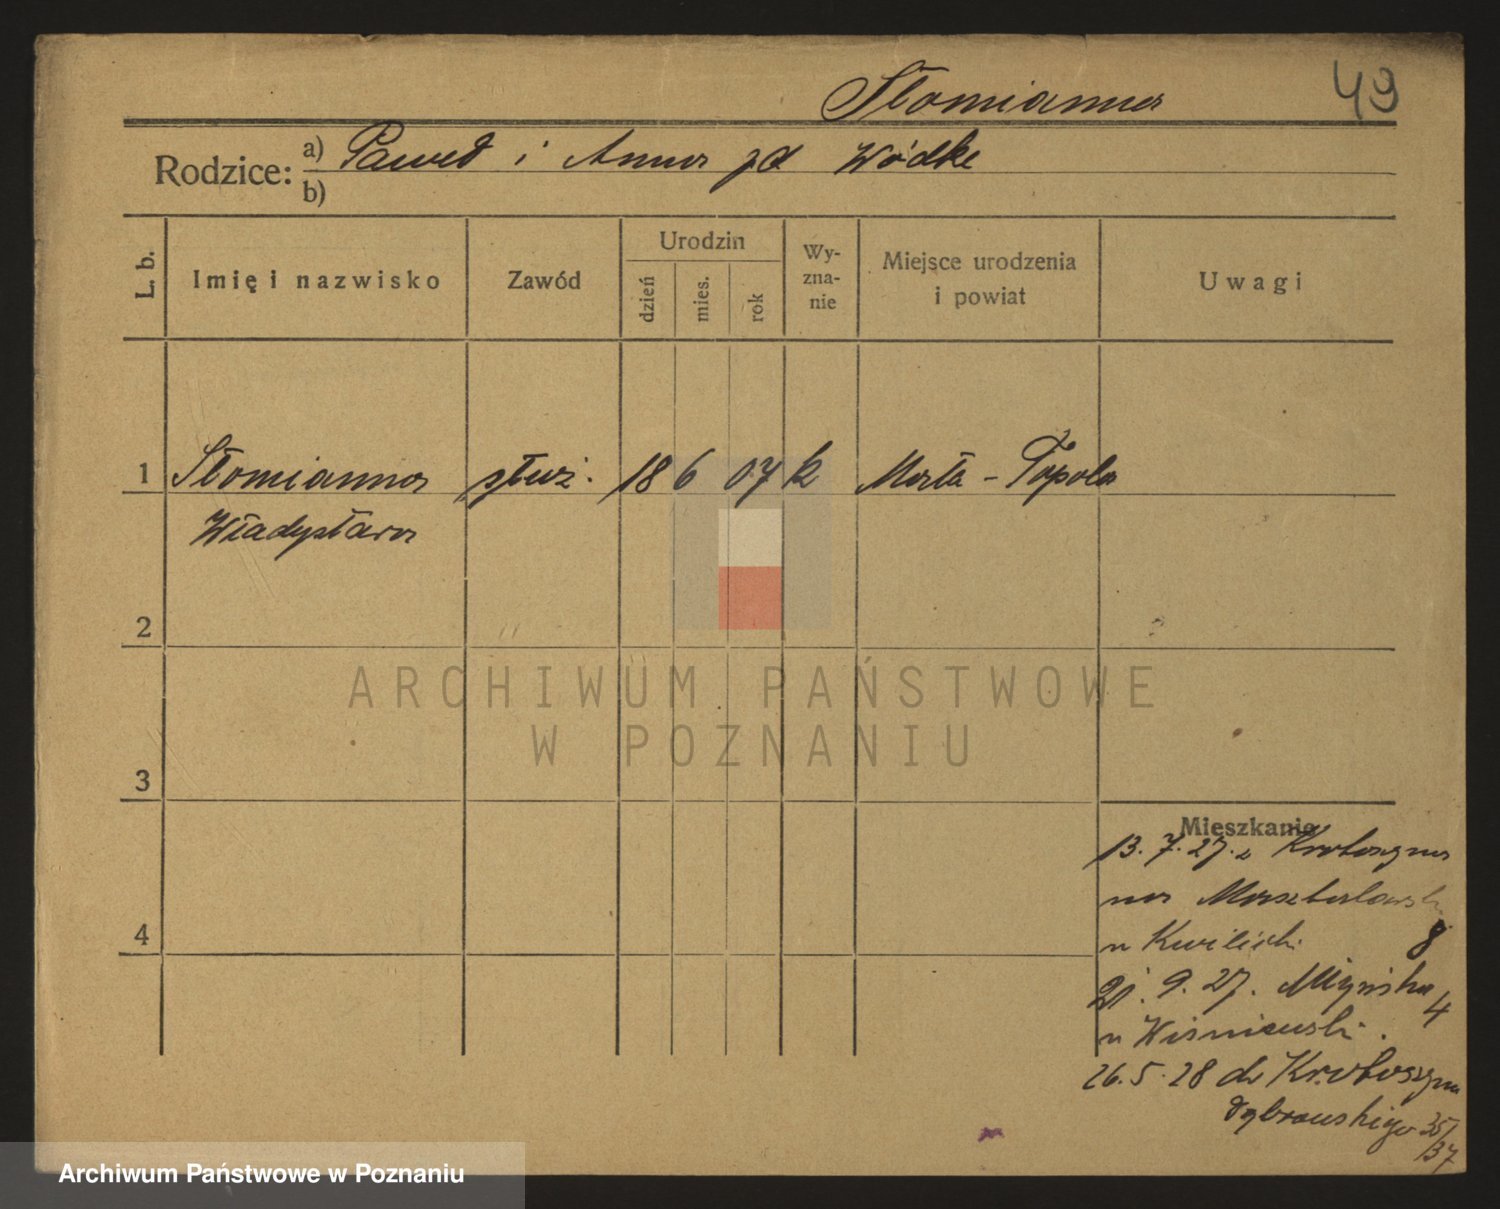 Słomianna 49
Rodzice: a) Paweł i Anna zd Wódke
b)
L. b. Imię i nazwisko Zawód Urodzin dzień mies. rok Wy-zna-nie Miejsce urodzenia i powiat Uwagi
1 Słomianna służ. 18 6 07 k Mała - Topola
Władysława
2
ARCHIWUM PAŃSTWOWE
W POZNANIU
3
Mieszkanie
13.7.27. z Krotoszyna
na
u Kwilicki 8
4
21.9.27. Młyńska 4
u Wiśniewski.
26.5.28 do Krotoszyna
35/37
Archiwum Państwowe w Poznaniu